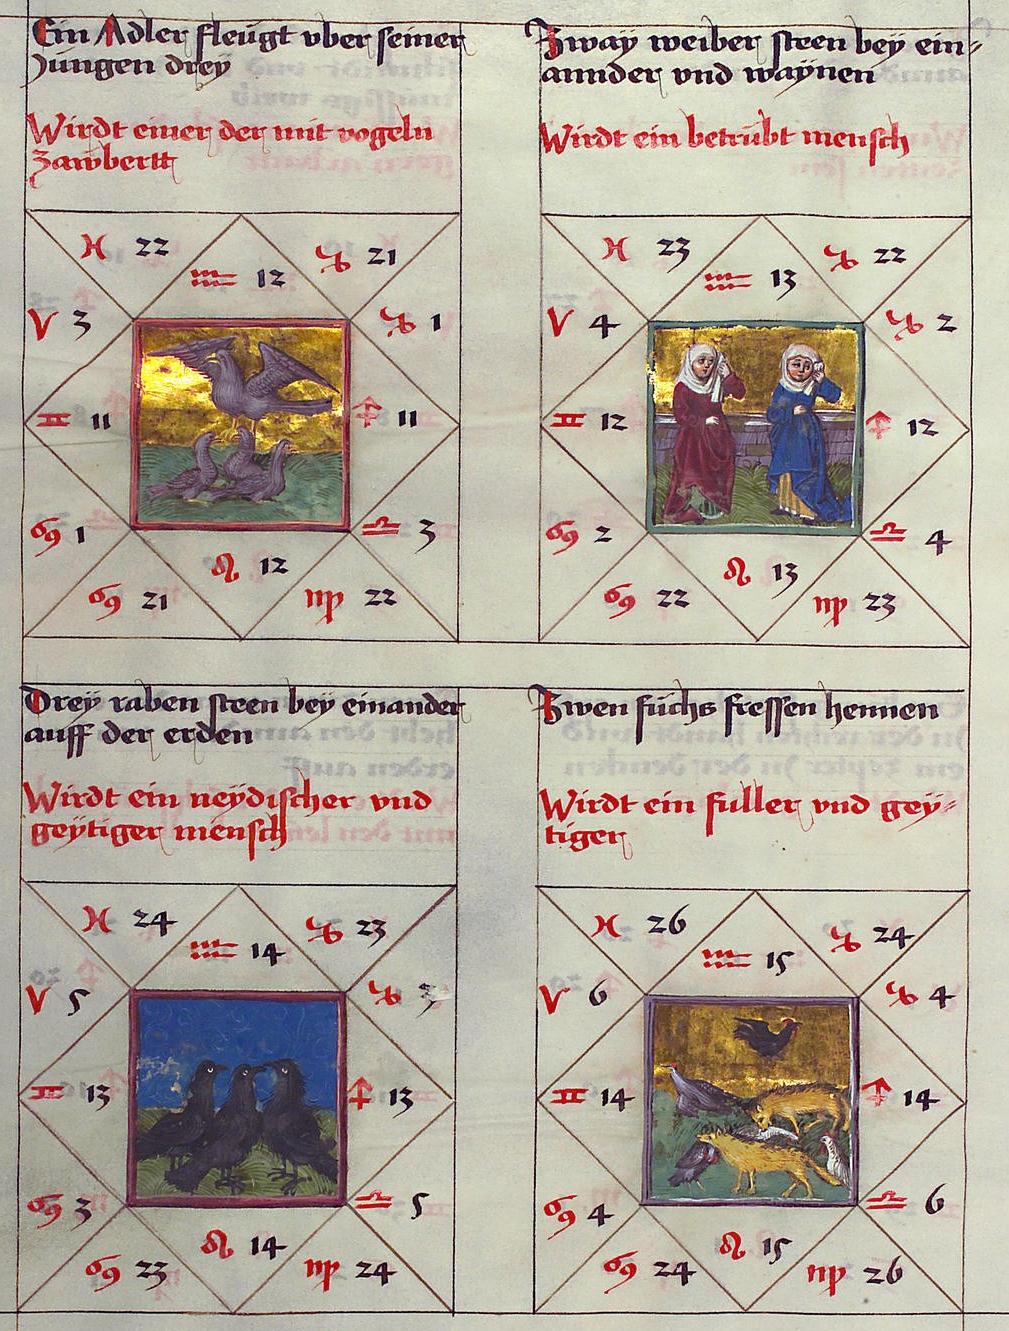 Ein Adler fleügt vber seiner
Jungen dreÿ
Wirdt einer der mit vogeln
Zawbertt
♓ 22
♒ 12
♑ 21
♈ 3
♑ 1
♊ 11
♐ 11
♋ 1
♎ 3
♌ 12
♋ 21
♍ 22
Zwaÿ weiber steen beÿ ein-
annder vnd waÿnen
Wirdt ein betrübt mensch
♓ 23
♒ 13
♑ 22
♈ 4
♑ 2
♊ 12
♐ 12
♋ 2
♎ 4
♌ 13
♋ 22
♍ 23
Dreÿ raben steen beÿ einander
auff der erden
Wirdt ein neÿdischer vnd
geÿtiger mensch
♓ 24
♒ 14
♑ 23
♈ 5
♑ 3
♊ 13
♐ 13
♋ 3
♎ 5
♌ 14
♋ 23
♍ 24
Zwen füchs fressen hennen
Wirdt ein fuller vnd geÿ-
tiger
♓ 26
♒ 15
♑ 24
♈ 6
♑ 4
♊ 14
♐ 14
♋ 4
♎ 6
♌ 15
♋ 24
♍ 26